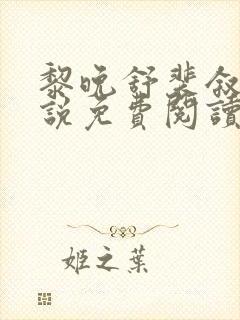 黎晚舒裴敘
說免費閱讀
姬之葉